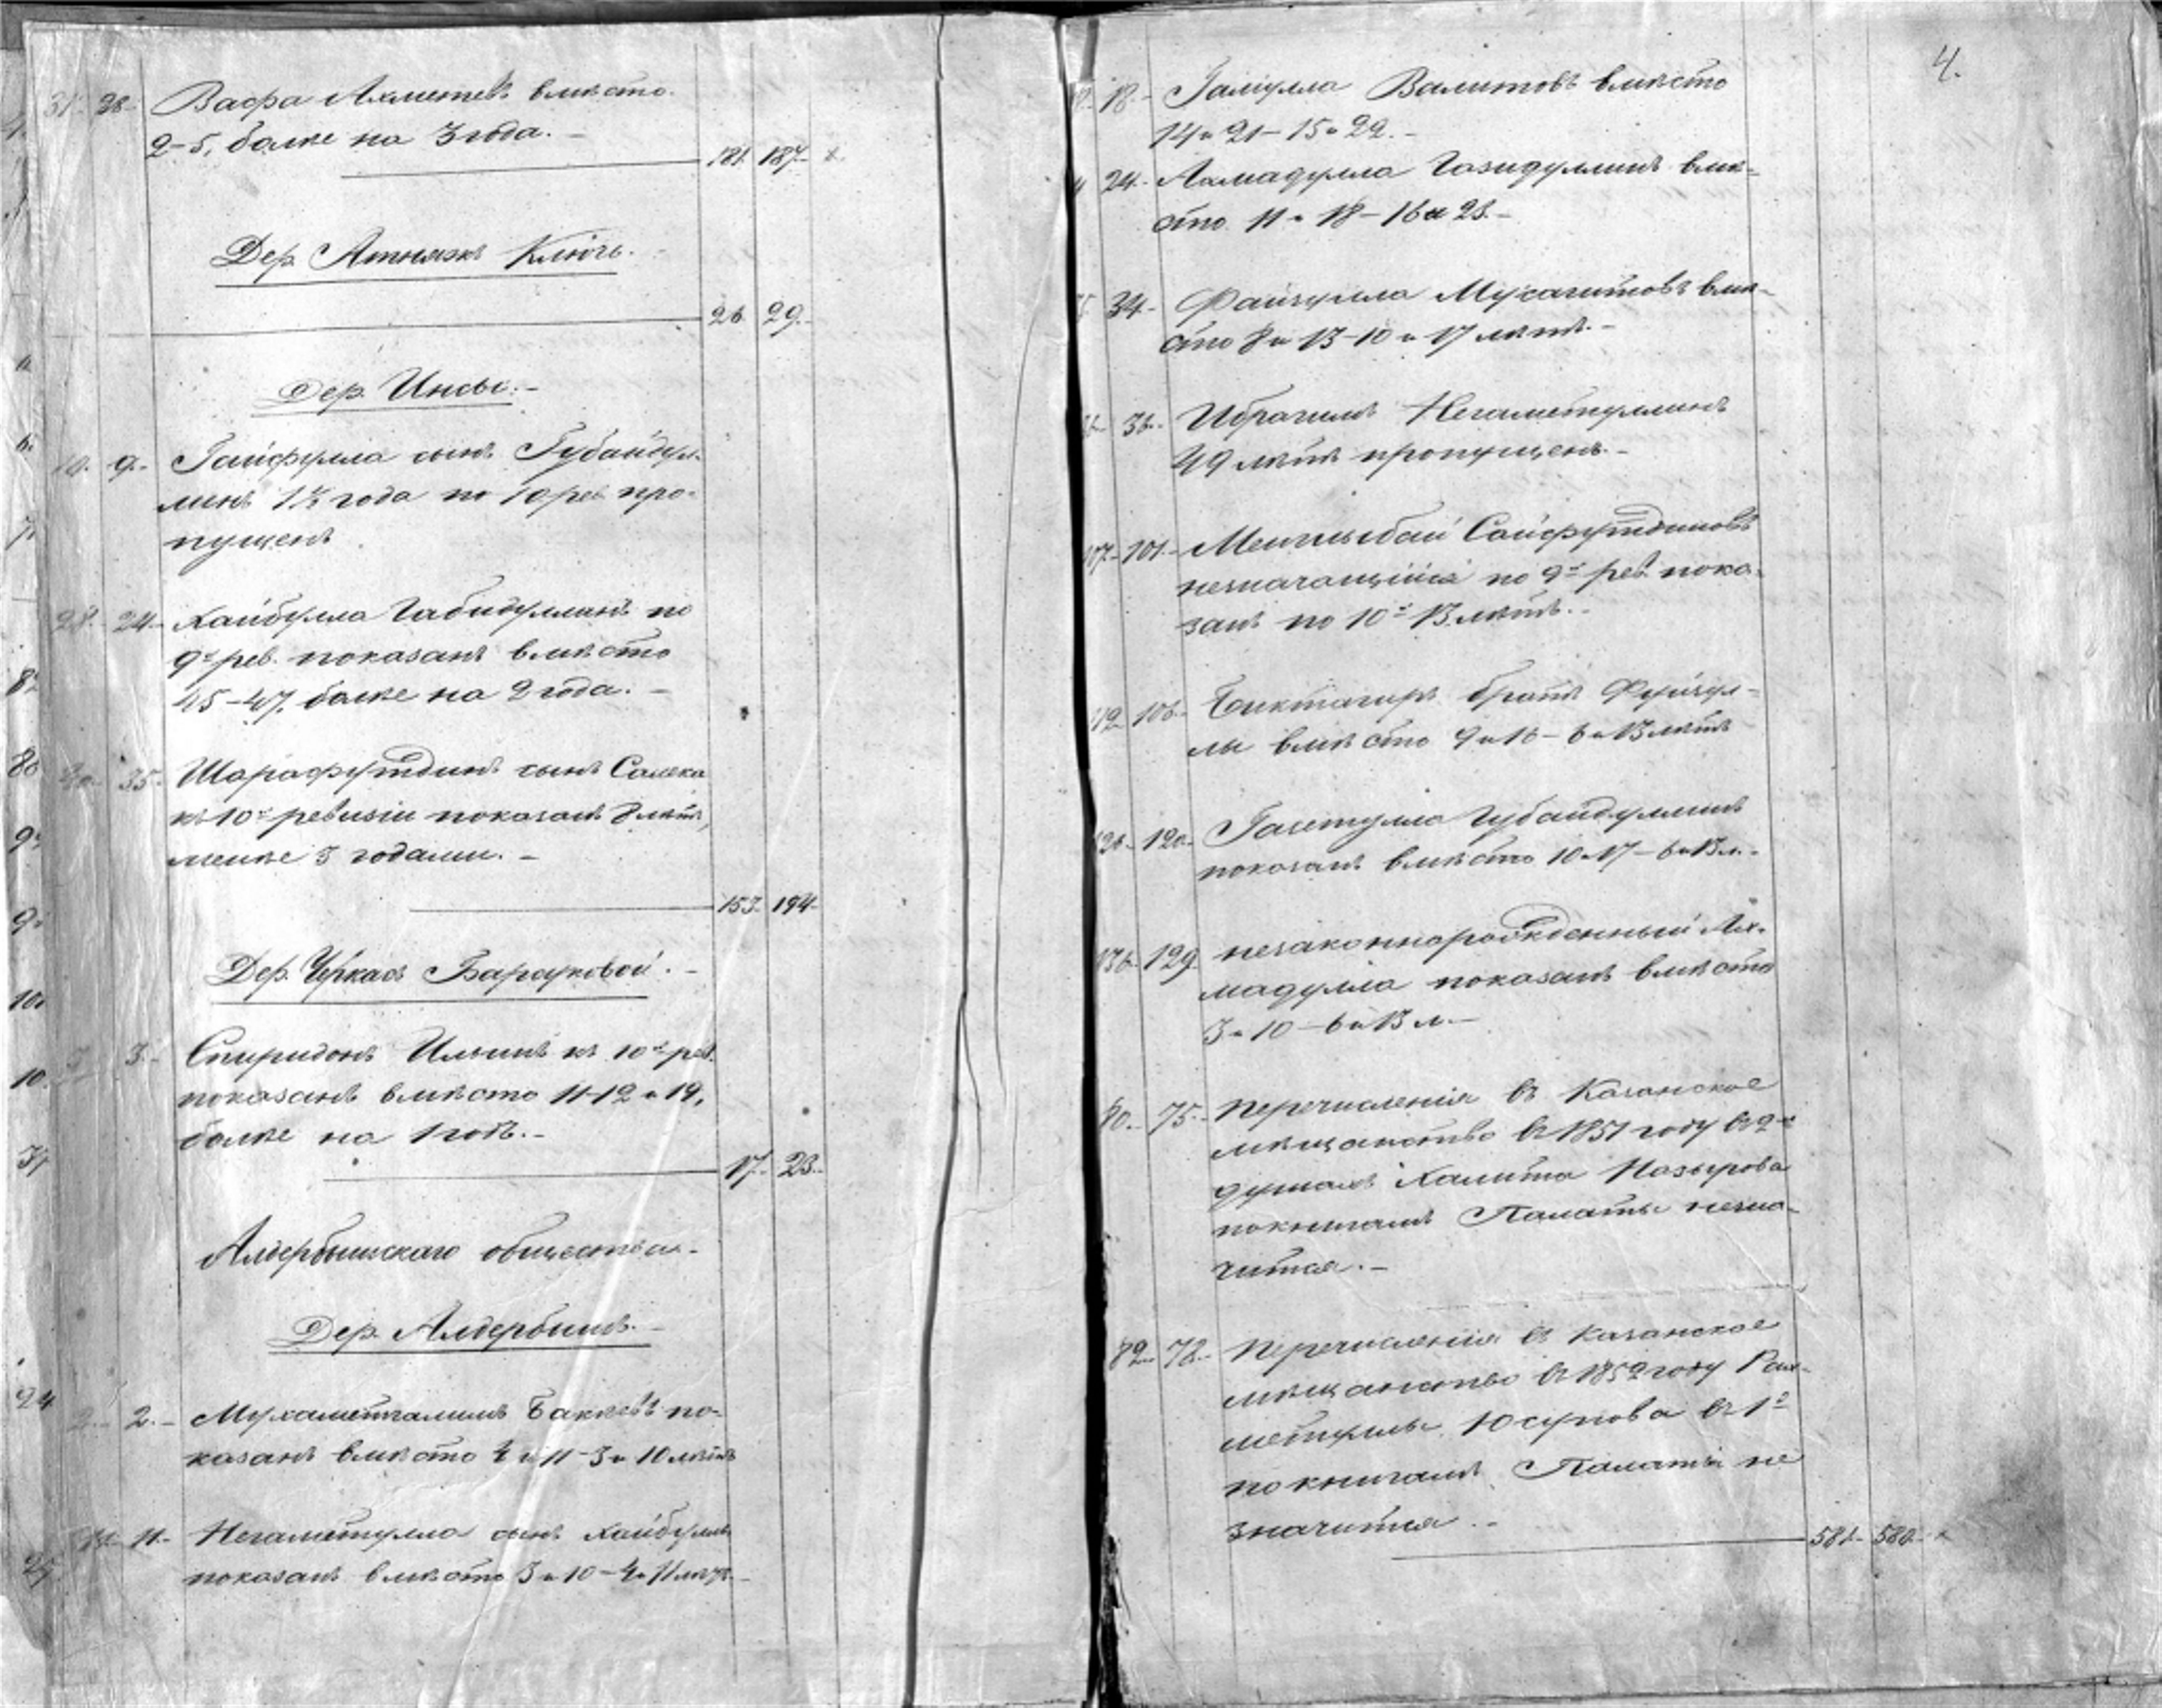 31. 28. Вафа Ахметевъ вмѣсто
2-5, болѣе на 3 года. –
181. 187.
Дер. Атнязъ Ключь. –
26. 29. –
Дер. Инсы. –
10. 9. – Гайфулла сынъ Губайдул-
линъ 1½ года по 10 рев. про-
пущенъ
28. 24. – Хайбулла Габидуллинъ по
9й рев. показанъ вмѣсто
45-47, болѣе на 2 года. –
40. 35. Шарафутдинъ сынъ Салека
къ 10й ревизіи показанъ 8 лѣтъ,
менѣе 3 годами. –
153. 194.
Дер. Чекасъ
3. – Спиридонъ Ильинъ къ 10й рев.
показанъ вмѣсто 11-12 и 19,
болѣе на 1 годъ. –
17. 23. –
Алдербышскаго общества. –
Дер. Алдербышъ. –
2. – 2. – Мухаметгалимъ Бакѣевъ по-
казанъ вмѣсто 4 и 11-3 и 10 лѣтъ
11. – 11. – Негаметулла сынъ Хайбуллы
показанъ вмѣсто 3 и 10-4 и 11 лѣтъ. –
4.
18. – Галиулла Валитовъ вмѣсто
14 и 21 – 15 и 22. –
24. – Ахмадулла Газидуллинъ вмѣ-
сто 11 и 18 – 16 и 23. –
34. – Файзулла Мухаметовъ вмѣ-
сто 8 и 13-10 и 17 лѣтъ. –
36. – Ибрагимъ Негаметуллинъ
49 лѣтъ пропущенъ. –
107. – 101. – Менглыбай Сайфутдиновъ
незначащійся по 9й рев. пока-
занъ по 10й 13 лѣтъ. –
112. 106. – Биктагиръ братъ Фейзул-
лы вмѣсто 9 и 16 – 6 и 13 лѣтъ
126. – 120. – Гаметулла Губайдуллинъ
показанъ вмѣсто 10 и 17 – 6 и 13 л. –
136. 129. незаконнорожденный Ах-
мадулла показанъ вмѣсто
3 и 10 – 6 и 13 л. –
80. – 75. – перечисленія въ Казанское
мѣщанство въ 1851 году въ 2хъ
душахъ Халита Назырова
по книгамъ Палаты незна-
чится. –
82. – 78. – перечисленія въ Казанское
мѣщанство въ 1852 году Рах-
метуллы Юсупова въ 1й
по книгамъ Палаты не
значится. –
581. – 580. –